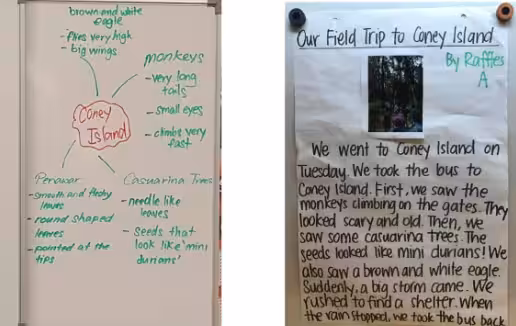 brown and white
eagle
- flies very high
- big wings
monkeys
- very long
tails
- small eyes
- climbs very
fast
Coney
Island
Penawar
- smooth and fleshy
leaves
- round shaped
leaves
- pointed at the
tips
Casuarina Trees
- needle like
leaves
- seeds that
look like 'mini
durians'
Our Field Trip to Coney Island
By Raffles
A
We went to Coney Island on
Tuesday. We took the bus to
Coney Island. First, we saw the
monkeys climbing on the gates. They
looked scary and old. Then, we
saw some casuarina trees. The
seeds looked like mini durians! We
also saw a brown and white eagle.
Suddenly, a big storm came. We
rushed to find a shelter. When
the rain stopped, we took the bus back